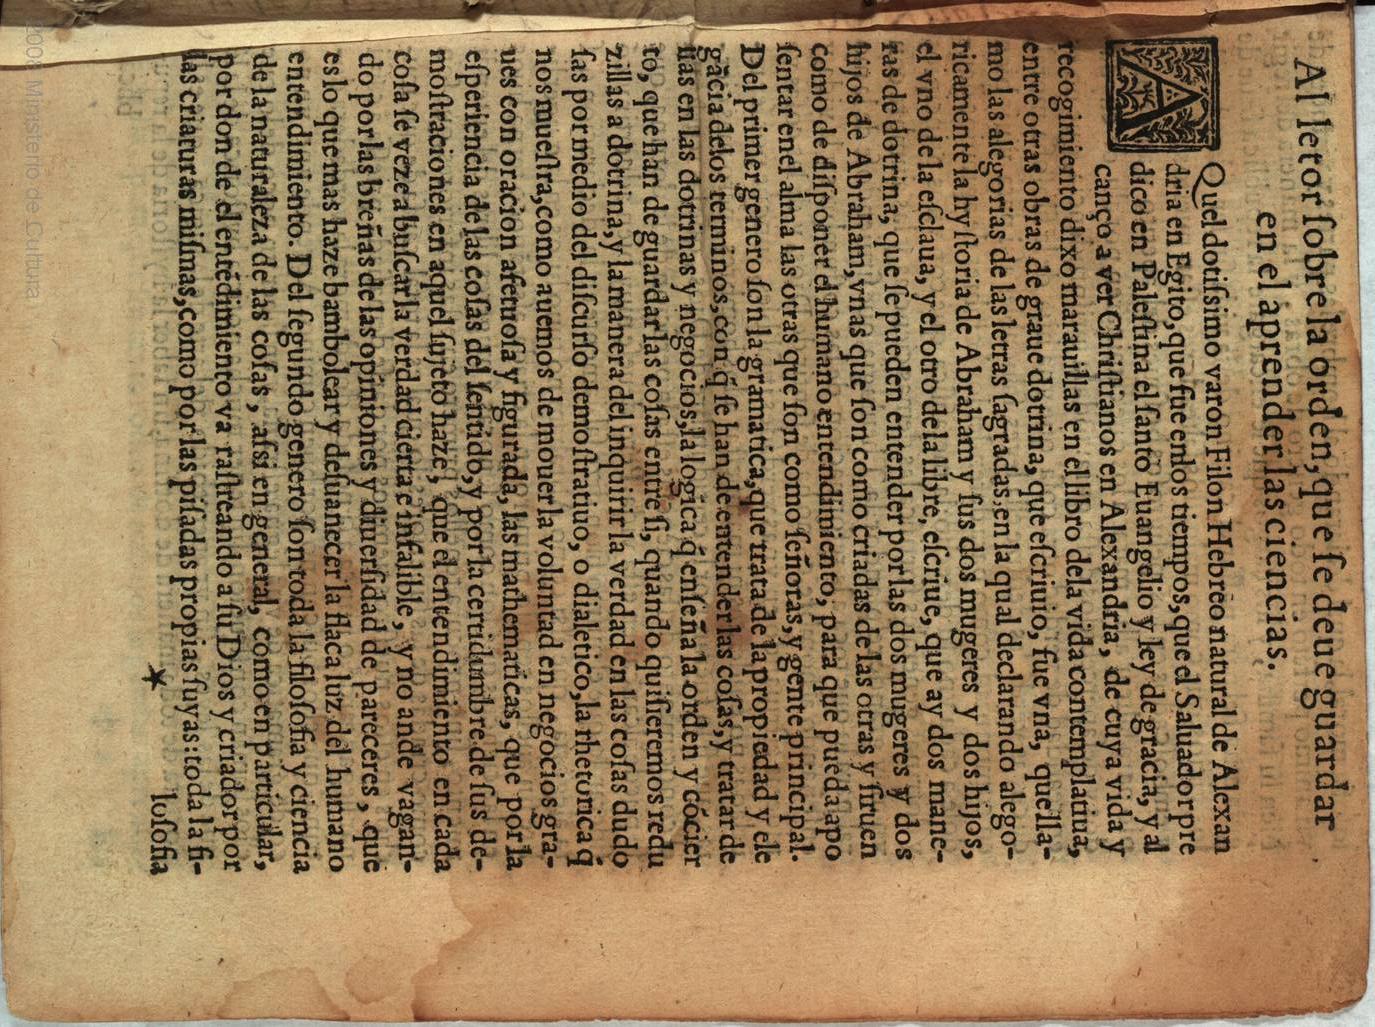 Al letor ſobre la orden, que ſe deue guardar
en el aprender las ciencias.
AQuel dotiſsimo varon Filon Hebreo natural de Alexan
dria en Egito, que fue enlos tiempos, que el Saluador pre
dicó en Paleſtina el ſanto Euangelio y ley de gracia, y al
canço a ver Chriſtianos en Alexandria, de cuya vida y
recogimiento dixo marauillas en el libro dela vida contemplatiua,
entre otras obras de graue dotrina, que eſcriuio, fue vna, que lla-
mo las alegorias de las letras ſagradas: en la qual declarando alego-
ricamente la hyſtoria de Abraham y ſus dos mugeres y dos hijos,
el vno de la eſclaua, y el otro dela libre, eſcriue, que ay dos mane-
ras de dotrina, que ſe pueden entender por las dos mugeres y dos
hijos de Abraham, vnas que ſon como criadas de las otras y ſiruen
como de diſponer el humano entendimiento, para que pueda apo
ſentar enel alma las otras que ſon como ſeñoras, y gente principal.
Del primer genero ſon la gramatica, que trata de la propiedad y ele
gãcia delos terminos, con q̃ ſe han de entender las coſas, y tratar de
llas en las dotrinas y negocios, la logica q̃ enſeña la orden y cõcier
to, que han de guardar las coſas entre ſi, quando quiſieremos redu
zillas a dotrina, y la manera del inquirir la verdad en las coſas dudo
ſas por medio del diſcurſo demoſtratiuo, o dialetico, la rhetorica q̃
nos mueſtra, como auemos de mouer la voluntad en negocios gra-
ues con oracion afetuoſa y figurada, las mathematicas, que por la
eſperiencia de las coſas del ſentido, y por la certidumbre de ſus de-
moſtraciones en aquel ſujeto haze, que el entendimiento en cada
coſa ſe veze a buſcar la verdad cierta e infalible, y no ande vagan-
do por las breñas de las opiniones y diuerſidad de pareceres, que
es lo que mas haze bambolear y deſuanecer la flaca luz del humano
entendimiento. Del ſegundo genero ſon toda la filoſofia y ciencia
de la naturaleza de las coſas, aſsi en general, como en particular,
por donde el entẽdimiento va raſtreando a ſu Dios y criador por
las criaturas miſmas, como por las piſadas propias ſuyas: toda la fi-
★ loſofia
2006 Ministerio de Cultura